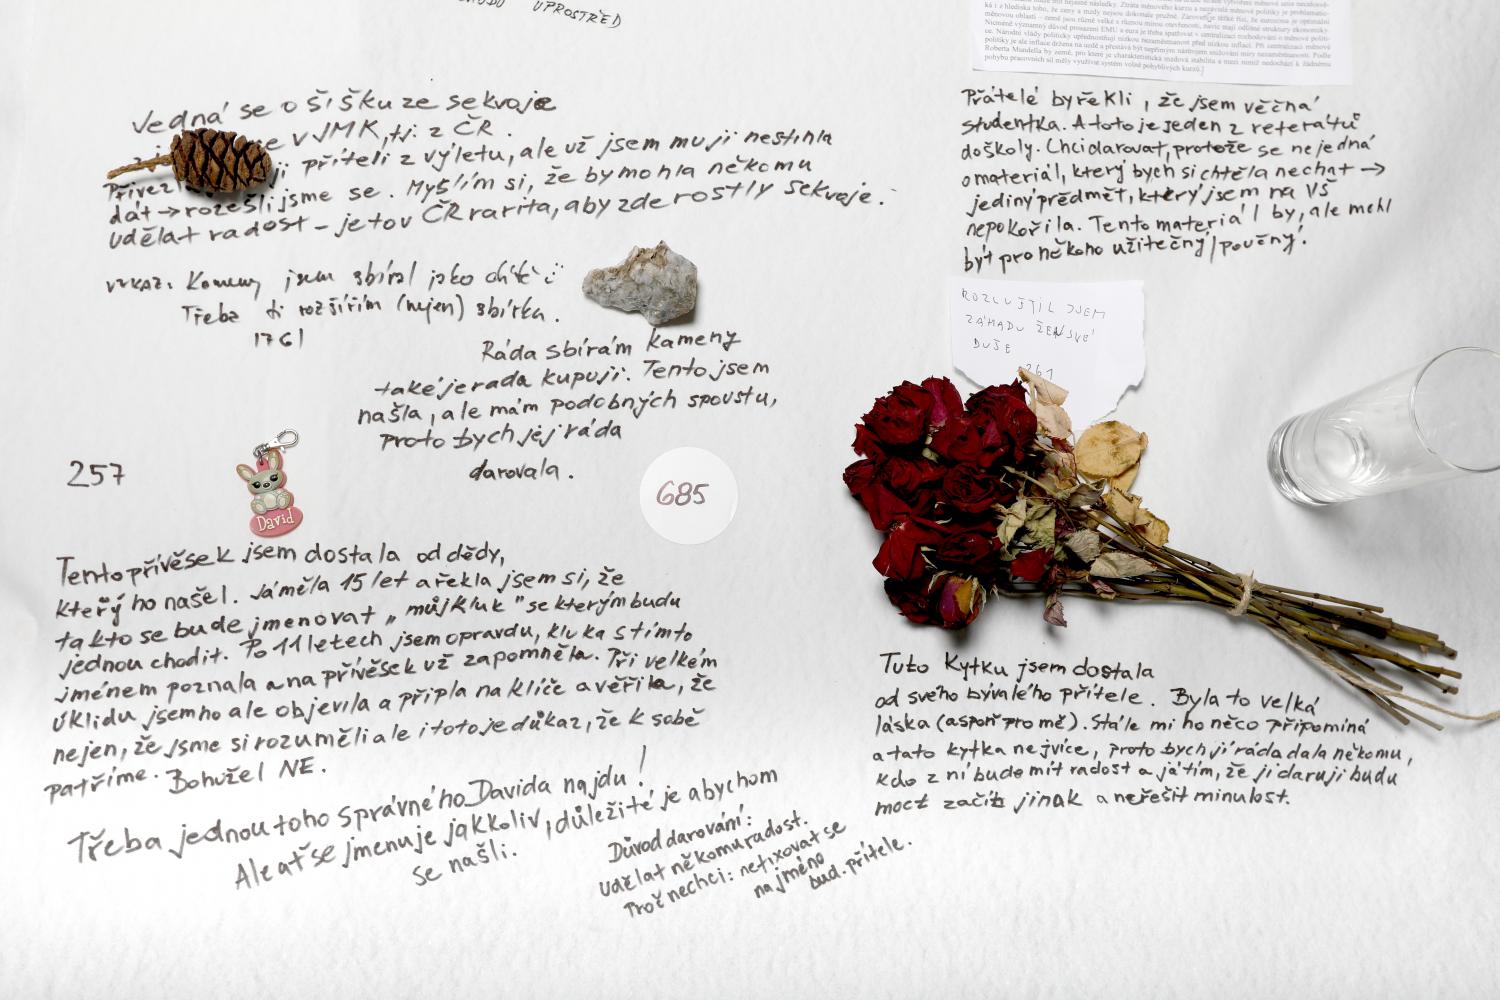 UPROSTŘED
měnové oblasti – země jsou různě velké s různou mírou otevřenosti, navíc mají odlišné struktury ekonomiky.
Nicméně významný důvod prosazení EMU a eura je třeba spatřovat v centralizaci rozhodování o měnové politi-
ce. Národní vlády politicky upřednostňují nízkou nezaměstnanost před nízkou inflací. Při centralizaci měnové
politiky je ale inflace držena na uzdě a přestává být nepřímým nástrojem snižování míry nezaměstnanosti. Podle
Roberta Mundella by země, pro které je charakteristická mzdová stabilita a mezi nimiž nedochází k žádnému
pohybu pracovních sil měly využívat systém volně pohyblivých kurzů.]
Jedná se o šišku ze sekvoje
v JMK, tj. z ČR.
příteli z výletu, ale už jsem mu ji nestihla
dát → rozešli jsme se. Myslím si, že by mohla někomu
udělat radost – je to v ČR rarita, aby zde rostly sekvoje.
VZKAZ: Kameny jsem sbíral jako dítě
Třeba ti rozšířím (nejen) sbírku.
1761
Ráda sbírám kameny
také je ráda kupuji. Tento jsem
našla, ale mám podobných spoustu,
proto bych jej ráda
darovala.
257
David
685
Tento přívěsek jsem dostala od dědy,
který ho našel. Já měla 15 let a řekla jsem si, že
takto se bude jmenovat „můj kluk" se kterým budu
jednou chodit. Po 11 letech jsem opravdu, kluka s tímto
jménem poznala a na přívěsek už zapomněla. Při velkém
úklidu jsem ho ale objevila a připla na klíče a věřila, že
nejen, že jsme si rozuměli ale i toto je důkaz, že k sobě
patříme. Bohužel NE.
Třeba jednou toho správného Davida najdu!
Ale ať se jmenuje jakkoliv, důležité je abychom
se našli.
Důvod darování:
Udělat někomu radost.
Proč nechci: nefixovat se
na jméno
bud. přítele.
Přátelé by řekli, že jsem věčná
studentka. A toto je jeden z referátů
do školy. Chci darovat, protože se nejedná
o materiál, který bych si chtěla nechat →
jediný předmět, který jsem na VŠ
nepokořila. Tento materiál by, ale mohl
být pro někoho užitečný/poučný.
ROZLUŠTIL JSEM
ZÁHADU ŽENSKÉ
DUŠE
261
Tuto kytku jsem dostala
od svého bývalého přítele. Byla to velká
láska (aspoň pro mě). Stále mi ho něco připomíná
a tato kytka nejvíce, proto bych jí ráda dala někomu,
kdo z ní bude mít radost a já tím, že ji daruji budu
moct začít jinak a neřešit minulost.